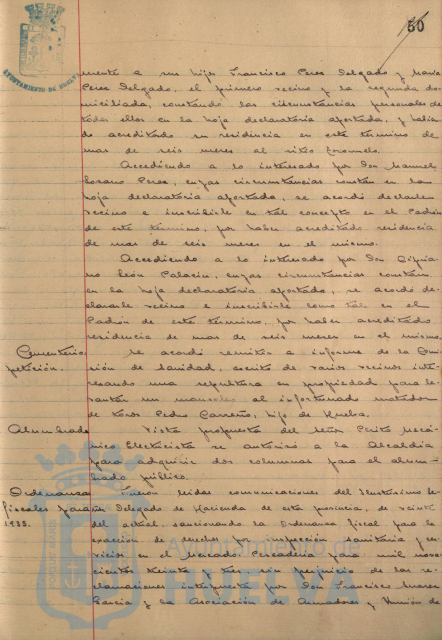 50
AYUNTAMIENTO DE HUELVA
mente a sus hijos Francisco Perez Delgado y María
Perez Delgado, el primero vecino y la segunda do-
miciliada, constando las circunstancias personales de
todos ellos en la hoja declaratoria aportada, y habien-
do acreditado su residencia en este término de
mas de seis meses al
Accediendo a lo interesado por Don Manuel
Lozano Perez, cuyas circunstancias constan en la
hoja declaratoria aportada, se acordó declararle
vecino e inscribirle en tal concepto en el Padrón
de este término, por haber acreditado residencia
de mas de seis meses en el mismo.
Accediendo a lo interesado por Don Cipria-
no León Palacin, cuyas circunstancias constan
en la hoja declaratoria aportada, se acordó de-
clararle vecino e inscribirle como tal en el
Padrón de este término, por haber acreditado
residencia de mas de seis meses en el mismo.
Cementerio petición.
Se acordó remitir a informe de la Comi-
sión de Sanidad, escrito de varios vecinos inte-
resando una sepultura en propiedad para le-
vantar un mausoleo al infortunado matador
de toros Pedro Carreño, hijo de Huelva.
Alumbrado
Vista propuesta del Señor Perito Mecá-
nico Electricista se autorizó a la Alcaldía
para adquirir dos columnas para el alum-
brado público.
Ordenanzas fiscales para 1933.
Fueron leidas comunicaciones del Ilustrísimo Se-
ñor Delegado de Hacienda de esta provincia, de veinte
del actual, sancionando la Ordenanza fiscal para la
exacción de derechos por inspección sanitaria y ser-
vicios en el Mercado Pescadería para mil nove-
cientos treinta y tres sin perjuicio de las re-
clamaciones interpuestas por Don Francisco Mares
Garcia y la Asociación de Armadores y Unión de
Ayuntamiento de
HUELVA